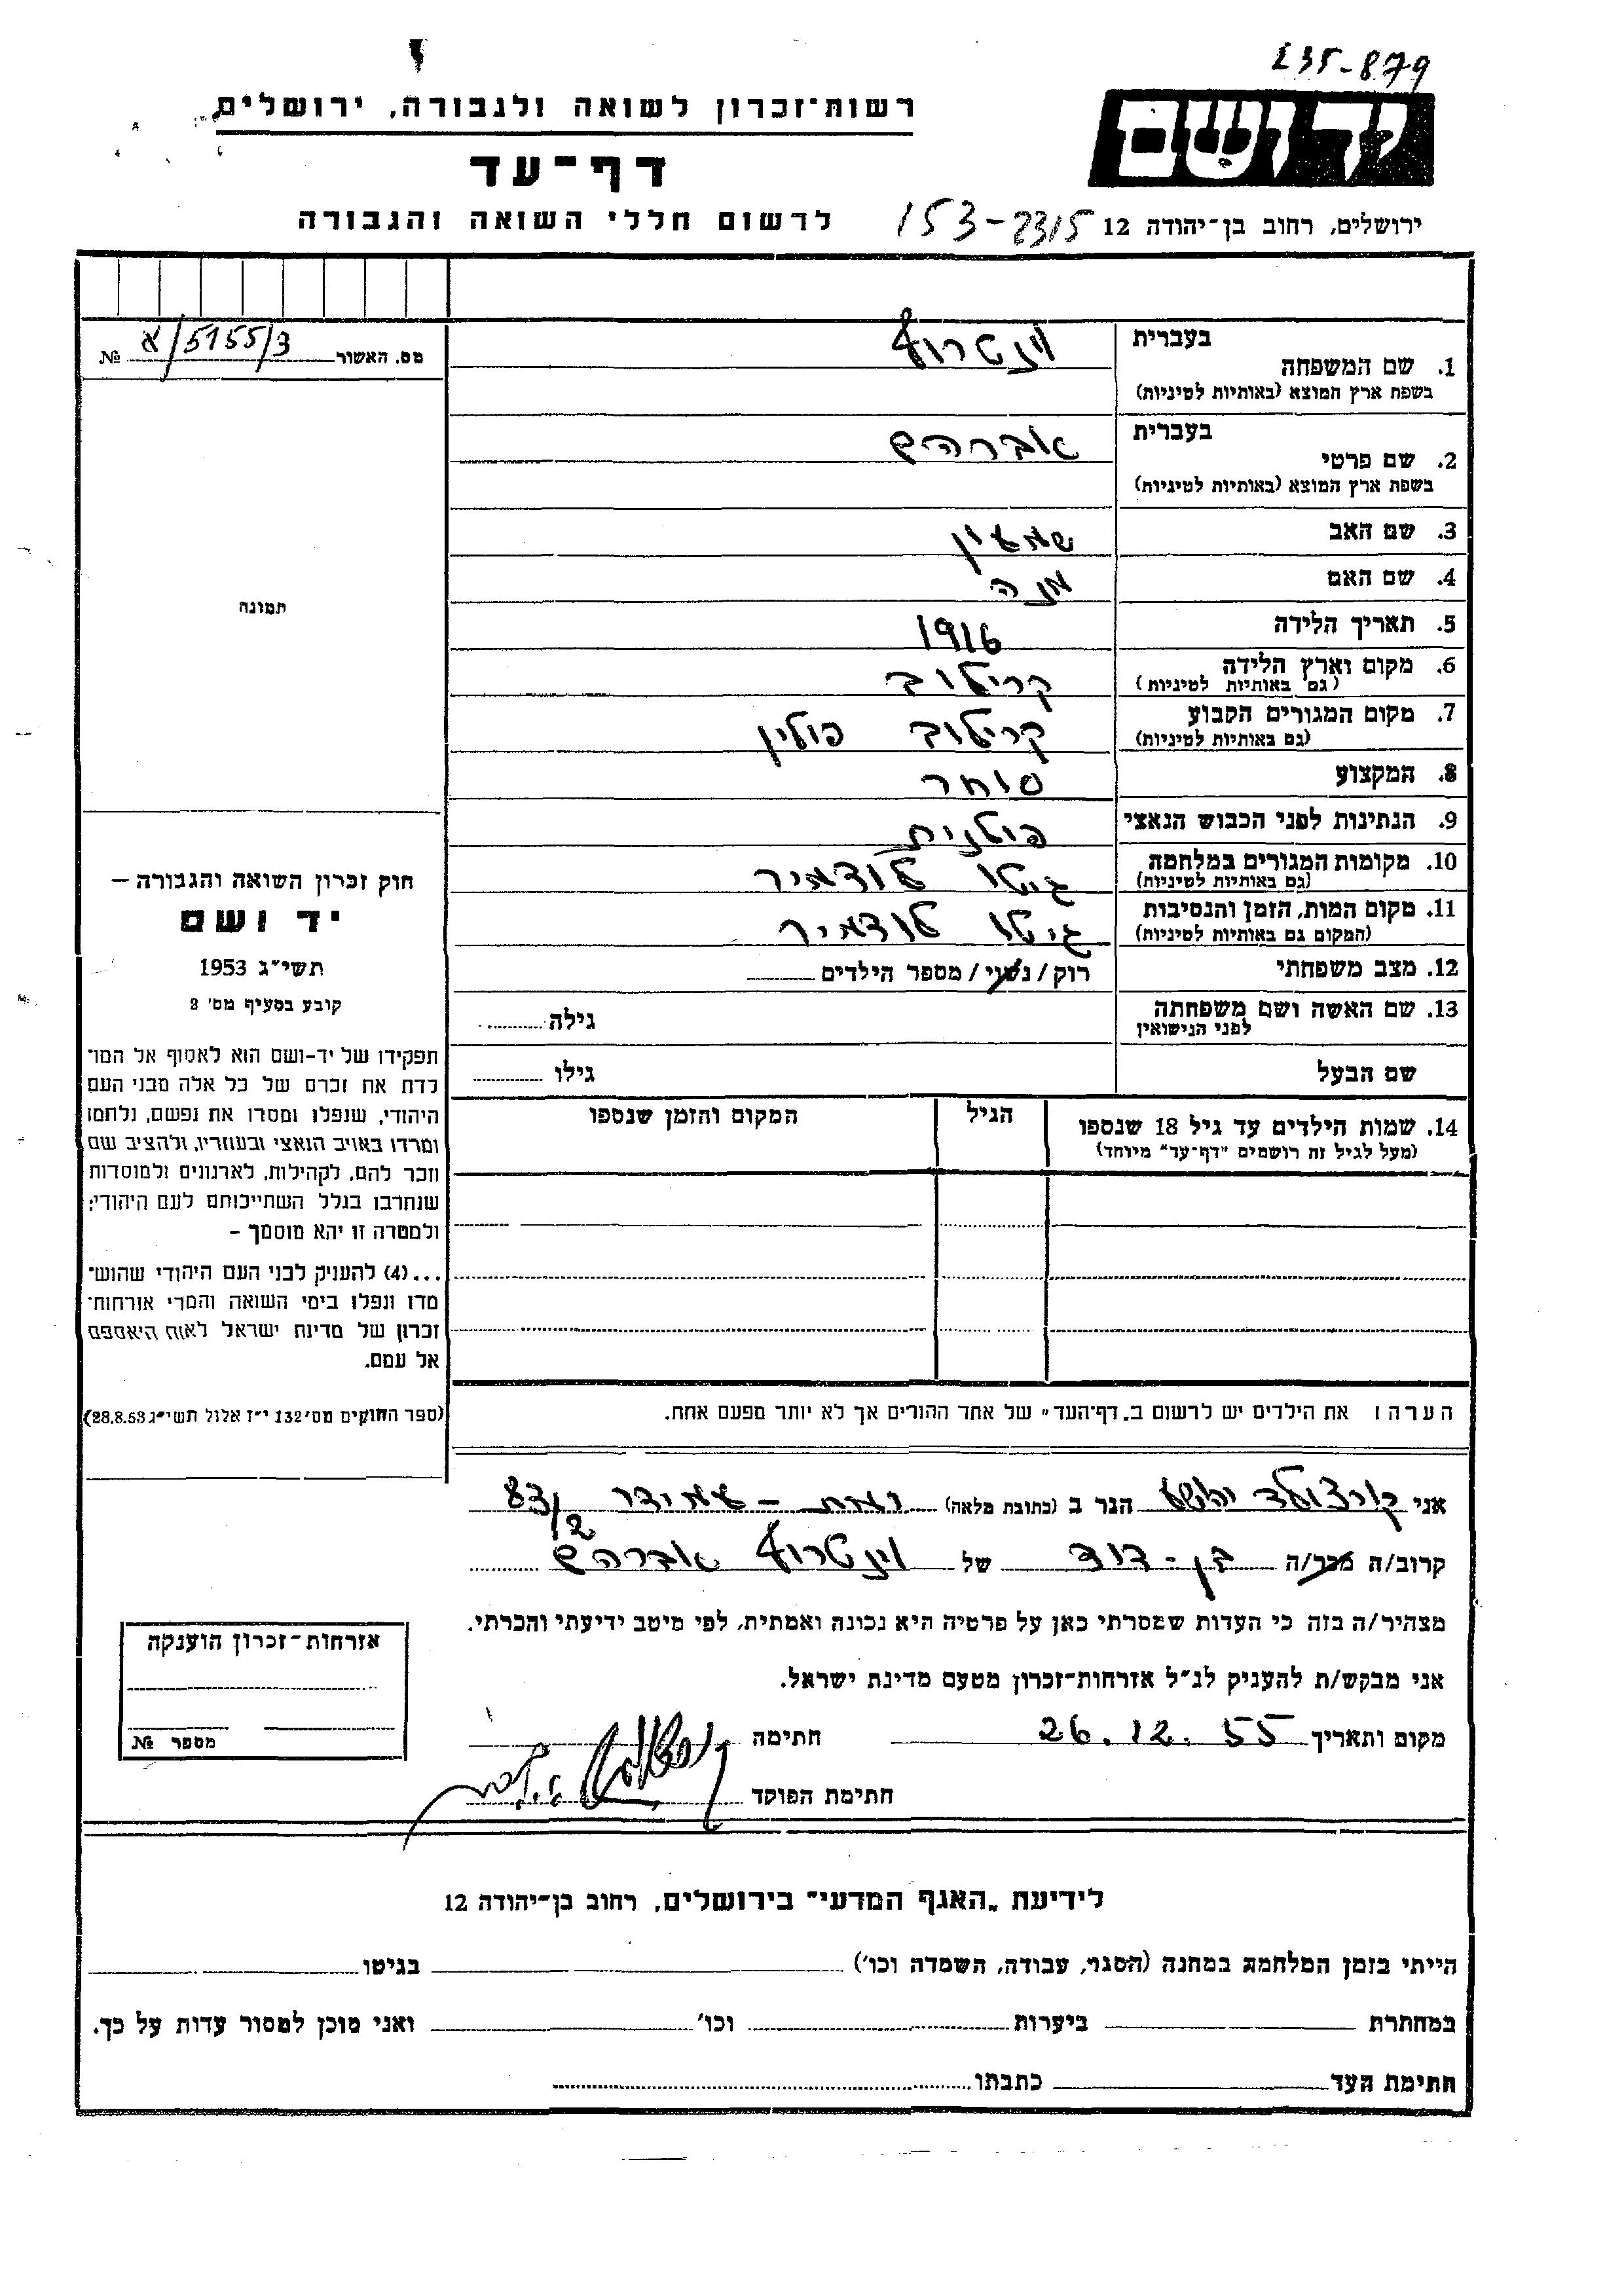 235-879
יד ושם
רשות-זכרון לשואה ולגבורה, ירושלים
דף-עד
לרשום חללי השואה והגבורה
ירושלים, רחוב בן-יהודה 12
153-2315
מס. האשור א/5155/3 №
בעברית
1. שם המשפחה
וינטרוף
בשפת ארץ המוצא (באותיות לטיניות)
בעברית
2. שם פרטי
אברהם
בשפת ארץ המוצא (באותיות לטיניות)
3. שם האב
שמעון
4. שם האם
5. תאריך הלידה
1916
6. מקום וארץ הלידה
(גם באותיות לטיניות)
קרילוב
7. מקום המגורים הקבוע
(גם באותיות לטיניות)
קרילוב פולין
8. המקצוע
סוחר
9. הנתינות לפני הכבוש הנאצי
פולנית
10. מקומות המגורים במלחמה
(גם באותיות לטיניות)
גיטו לודמיר
11. מקום המות, הזמן והנסיבות
(המקום גם באותיות לטיניות)
גיטו לודמיר
12. מצב משפחתי
רוק / נשוי / מספר הילדים
13. שם האשה ושם משפחתה
לפני הנישואין
גילה
שם הבעל
גילו
14. שמות הילדים עד גיל 18 שנספו
(מעל לגיל זה רושמים "דף-עד" מיוחד)
הגיל
המקום והזמן שנספו
הערה: את הילדים יש לרשום ב„דף-העד" של אחד ההורים אך לא יותר מפעם אחת.
תמונה
חוק זכרון השואה והגבורה –
יד ושם
תשי"ג 1953
קובע בסעיף מס' 2
תפקידו של יד-ושם הוא לאסוף אל המו־
לדת את זכרם של כל אלה מבני העם
היהודי, שנפלו ומסרו את נפשם, נלחמו
ומרדו באויב הנאצי ובעוזריו, ולהציב שם
וזכר להם, לקהילות, לארגונים ולמוסדות
שנחרבו בגלל השתייכותם לעם היהודי;
ולמטרה זו יהא מוסמך –
...(4) להעניק לבני העם היהודי שהוש־
מדו ונפלו בימי השואה והמרי אזרחות־
זכרון של מדינת ישראל לאות היאספם
אל עמם.
(ספר החוקים מס' 132 י"ז אלול תשי"ג 28.8.53)
אני יהושע הגר ב (כתובת מלאה) רמת – עמידר 83/2
קרוב/ה מכר/ה בן-דוד של וינטרוף אברהם
מצהיר/ה בזה כי העדות שמסרתי כאן על פרטיה היא נכונה ואמתית, לפי מיטב ידיעתי והכרתי.
אני מבקש/ת להעניק לנ"ל אזרחות-זכרון מטעם מדינת ישראל.
מקום ותאריך 26.12.55 חתימה
חתימת הפוקד
אזרחות-זכרון הוענקה
מספר №
לידיעת „האגף המדעי" בירושלים, רחוב בן-יהודה 12
הייתי בזמן המלחמה במחנה (הסגר, עבודה, השמדה וכו') בגיטו
במחתרת ביערות וכו' ואני מוכן למסור עדות על כך.
חתימת העד כתבתו